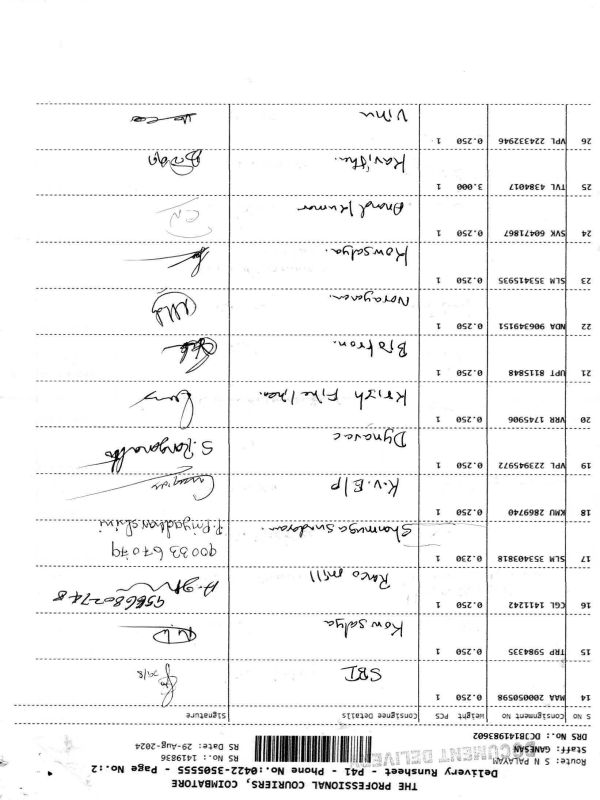 THE PROFESSIONAL COURIERS, COIMBATORE
Delivery Runsheet - D41 - Phone No.:0422-3505555 - Page No.:2
Route: S N PALAYAM DOCUMENT DELIVERY
Staff: GANESAN RS No.: 1419836
DRS No.: DCB1414983602 RS Date: 29-Aug-2024
S NO Consignment No Weight PCS Consignee Details Signature
14 MAA 200050598 0.250 1 SBI
15 TRP 5984335 0.250 1 Kowsalya
16 CGL 1411242 0.250 1 Raico mill 9566802748
17 SLM 353403818 0.230 1 Shanmuga Sundaram. 9003367079
P. Priyadharshini
18 KMU 2869740 0.250 1 K.V. E/P
19 VPL 223945972 0.250 1 Dynavac S. Ranganath
20 VRR 1745906 0.250 1 Krish
21 UPT 8115848 0.250 1
22 NDA 906349151 0.250 1 Narayanan.
23 SLM 353415935 0.250 1 Kowsalya.
24 SVK 60471867 0.250 1 Anand Kumar
25 TVL 4384017 3.000 1 Kavitha.
26 VPL 224332946 0.250 1 Vinu